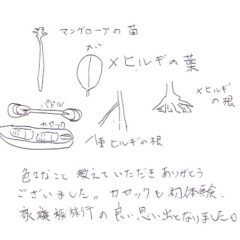 マングローブの苗
メヒルギの葉
メヒルギ
の根
パドル
カヤック
八重ヒルギの根
色々なこと 教えていただき ありがとう
ございました。カヤックも初体験、
家族旅行の良い思い出となりました。